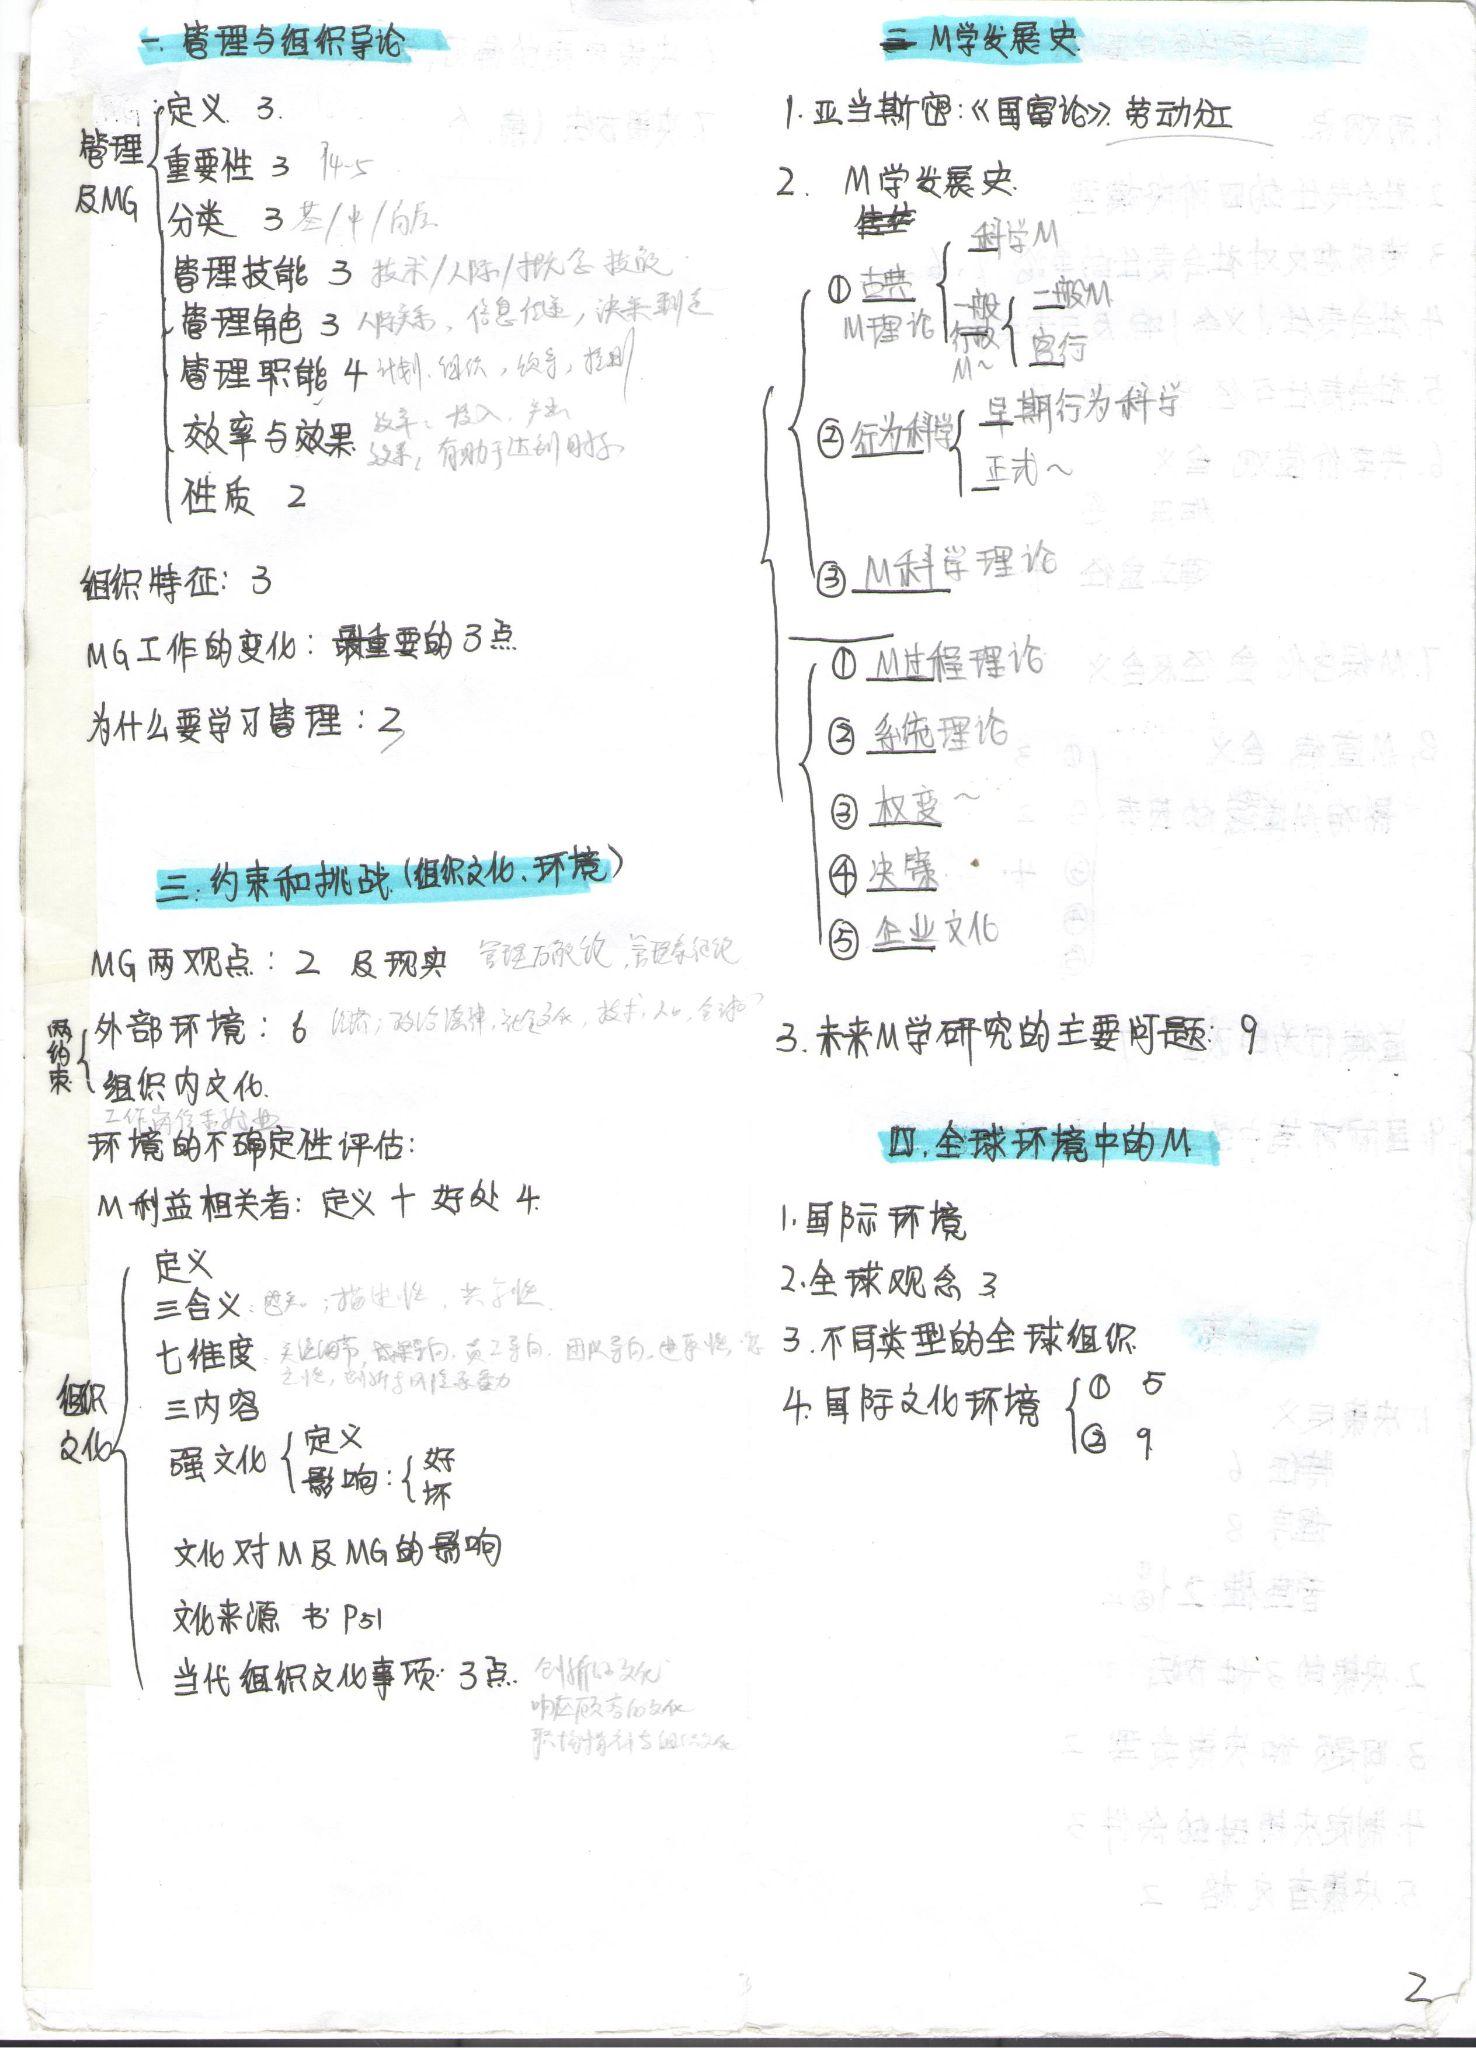 一. 管理与组织导论
管理及MG
定义 3.
重要性 3 P4-5
分类 3 基/中/高层
管理技能 3 技术/人际/概念技能
管理角色 3 人际关系、信息传递，决策制定
管理职能 4 计划、组织，领导，控制
效率与效果 效率：投入、产出
效果：有助于达到目标
性质 2
组织特征：3
MG工作的变化：最重要的3点
为什么要学习管理：2
三. 约束和挑战(组织文化、环境)
MG两观点：2 及现实 管理万能论、管理象征论
两约束
外部环境：6 经济；政治法律，社会文化，技术，人口，全球
组织内文化.
环境的不确定性评估：
M利益相关者：定义＋好处 4.
组织文化
定义
三含义：感知；描述性、共享性
七维度 关注细节，成果导向、员工导向、团队导向、进取性、稳定性，创新与风险承受力
三内容
强文化
定义
影响：
好
坏
文化对M及MG的影响
文化来源 书P51
当代组织文化事项：3点 创新的文化
响应顾客的文化
二 M学发展史
1. 亚当斯密：《国富论》. 劳动分工
2. M学发展史
① 古典M理论
科学M
一般行政M~
一般M
官行
② 行为科学
早期行为科学
正式~
③ M科学理论
① M过程理论
② 系统理论
③ 权变~
④ 决策
⑤ 企业文化
3. 未来M学研究的主要问题：9
四. 全球环境中的M
1. 国际环境
2. 全球观念 3
3. 不同类型的全球组织
4. 国际文化环境
① 5
② 9
2